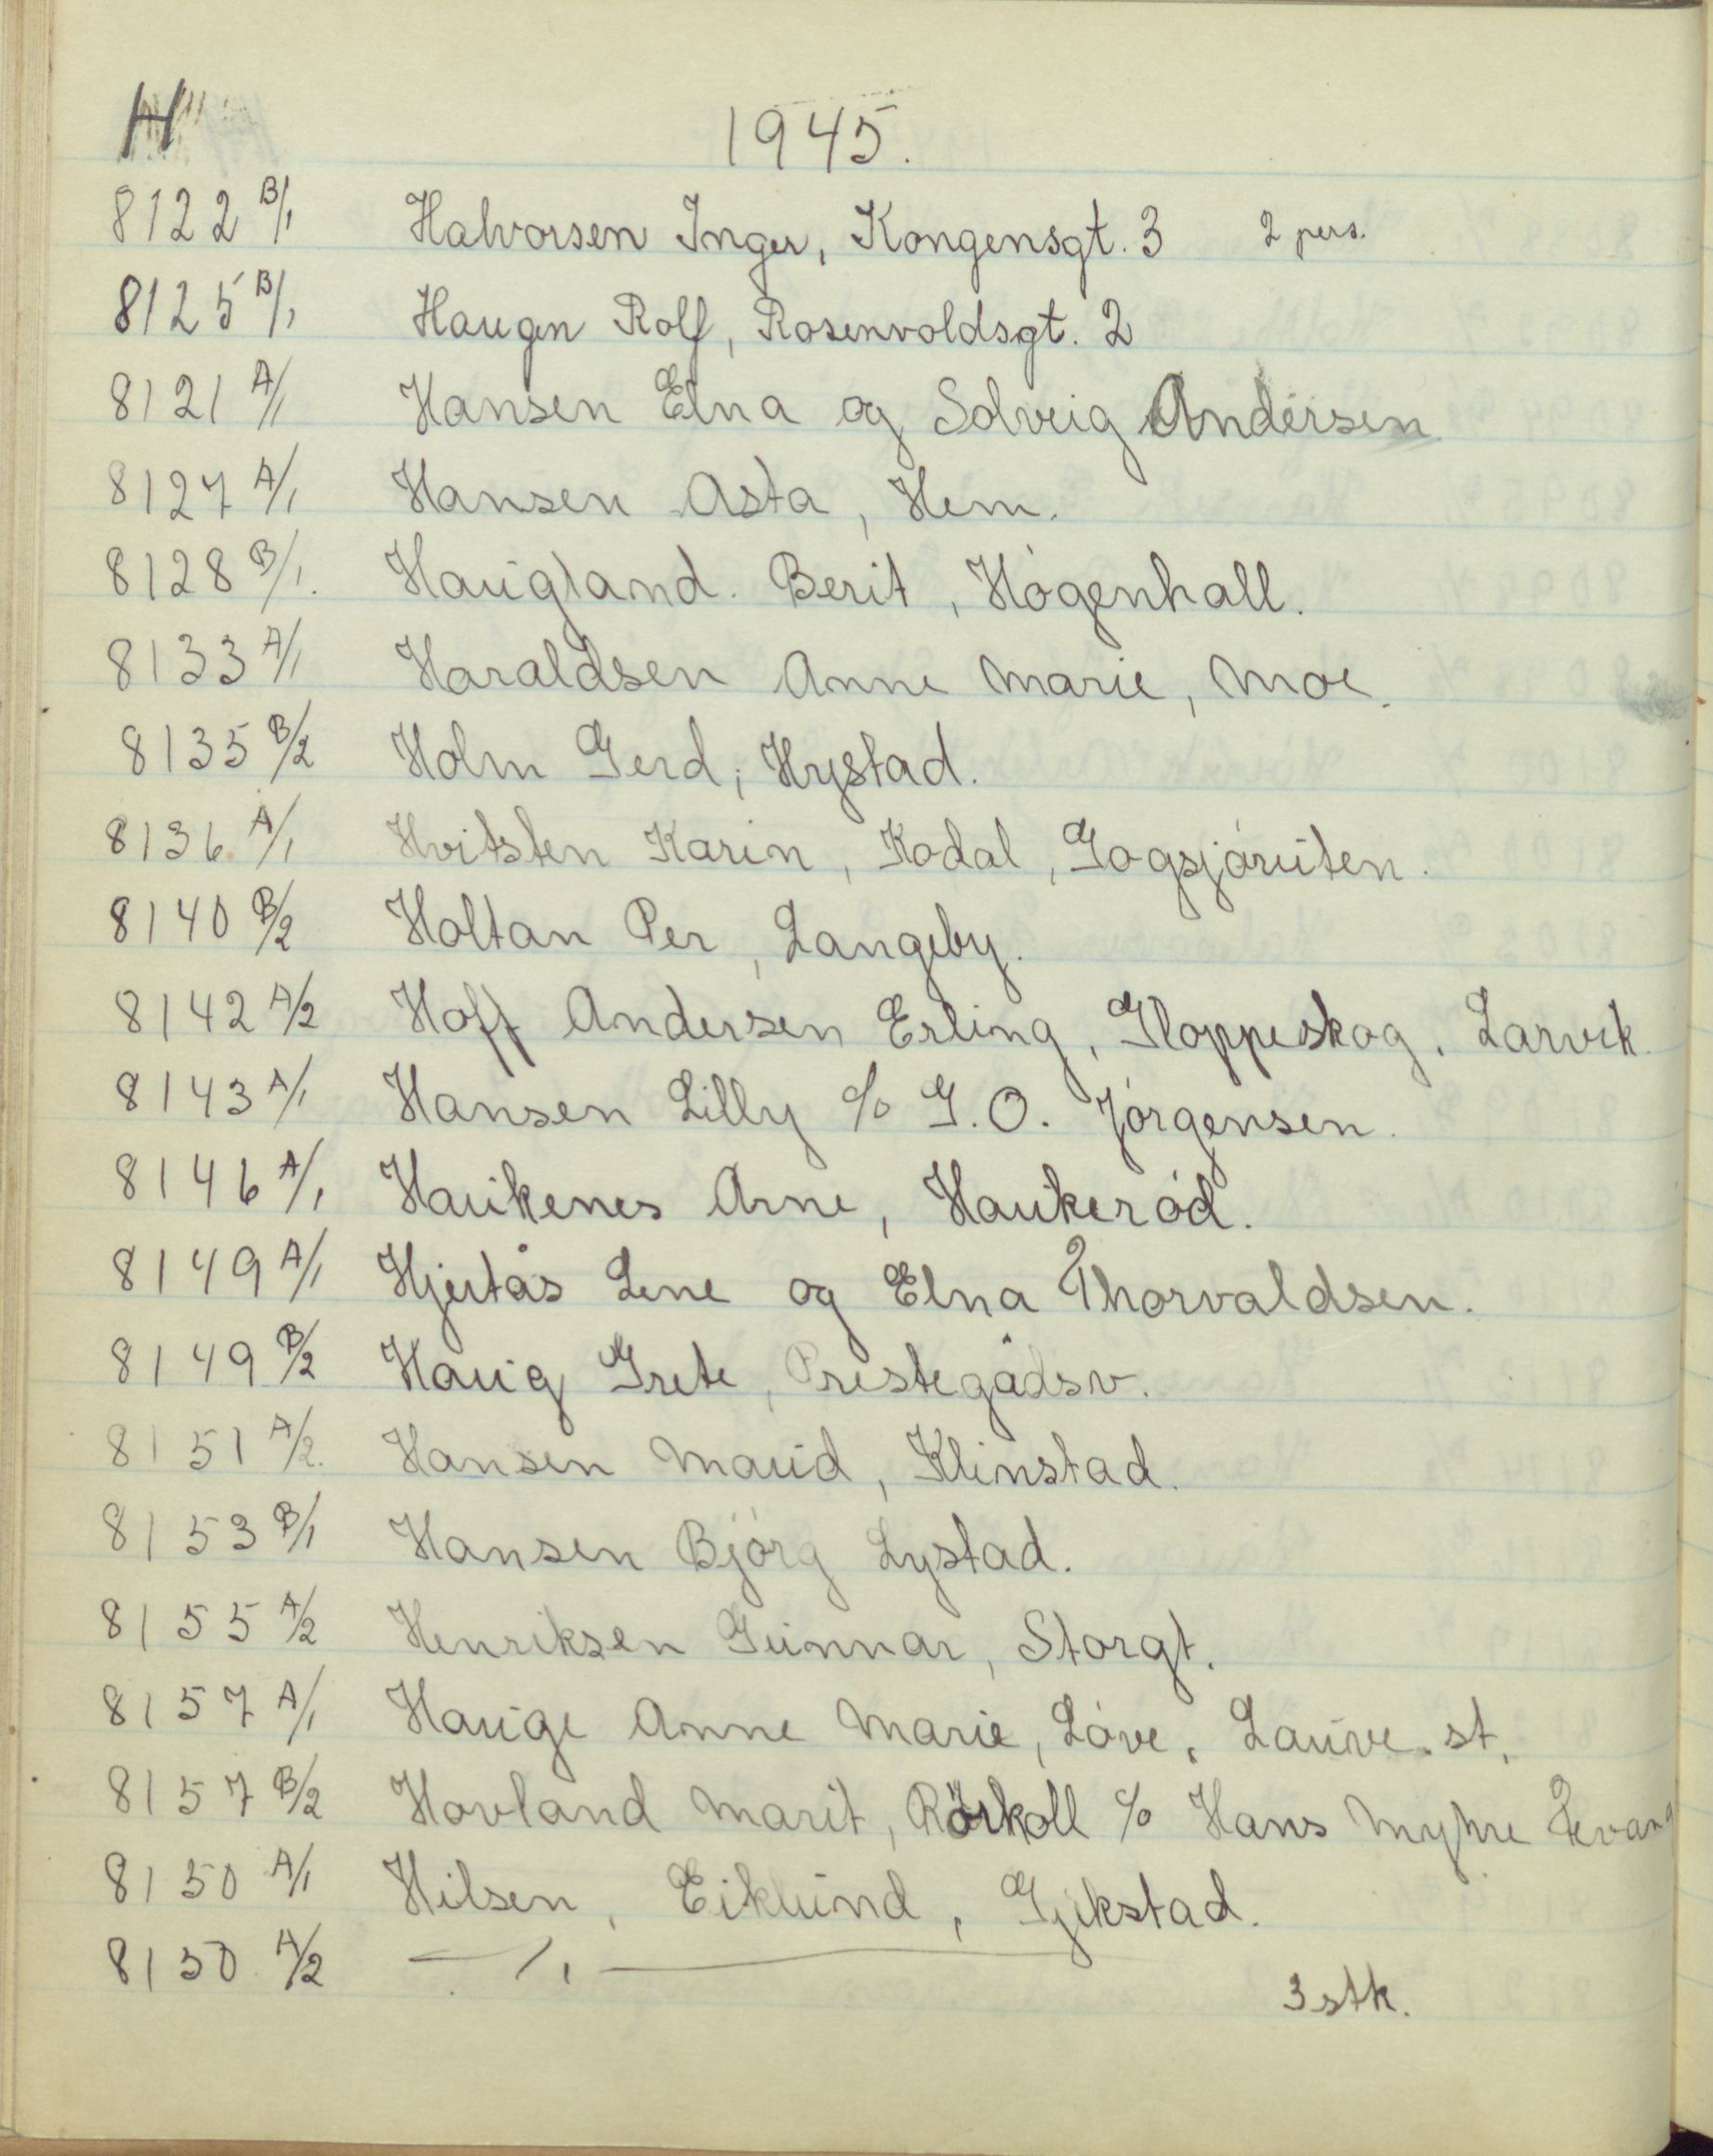 H
1945.
8122 B/1 Halvorsen Inger, Kongensgt. 3 2 pers.
8125 B/1 Haugen Rolf, Rosenvoldsgt. 2
8121 A/1 Hansen Elna og Solveig Andersen
8127 A/1 Hansen Asta, Hem.
8128 B/1. Haugland. Berit, Högenhall.
8133 A/1 Haraldsen Anne Marie, Moe.
8135 B/2 Holm Gerd, Hystad.
8136 A/1 Hvitsten Karin, Kodal, Gogsjøruten.
8140 B/2 Holtan Per, Langeby.
8142 A/2 Hoff Andersen Erling, Gloppeskog, Larvik.
8143 A/1 Hansen Lilly c/o G. O. Jørgensen.
8146 A/1 Haukenes Arne, Haukerød.
8149 A/1 Hjertås Lene og Elna Thorvaldsen.
8149 B/2 Haug Grete, Prestegådsv.
8151 A/2. Hansen Maud, Klinstad.
8153 B/1 Hansen Bjørg Lystad.
8155 A/2 Henriksen Gunnar, Storgt.
8157 A/1 Hauge Anne Marie, Løve, Lauve st.
8157 B/2 Hovland Marit, Rørkoll c/o Hans Myhre Kvang
8150 A/1 Hilsen, Eiklund, Gjekstad.
8150 A/2 — " —
3 stk.